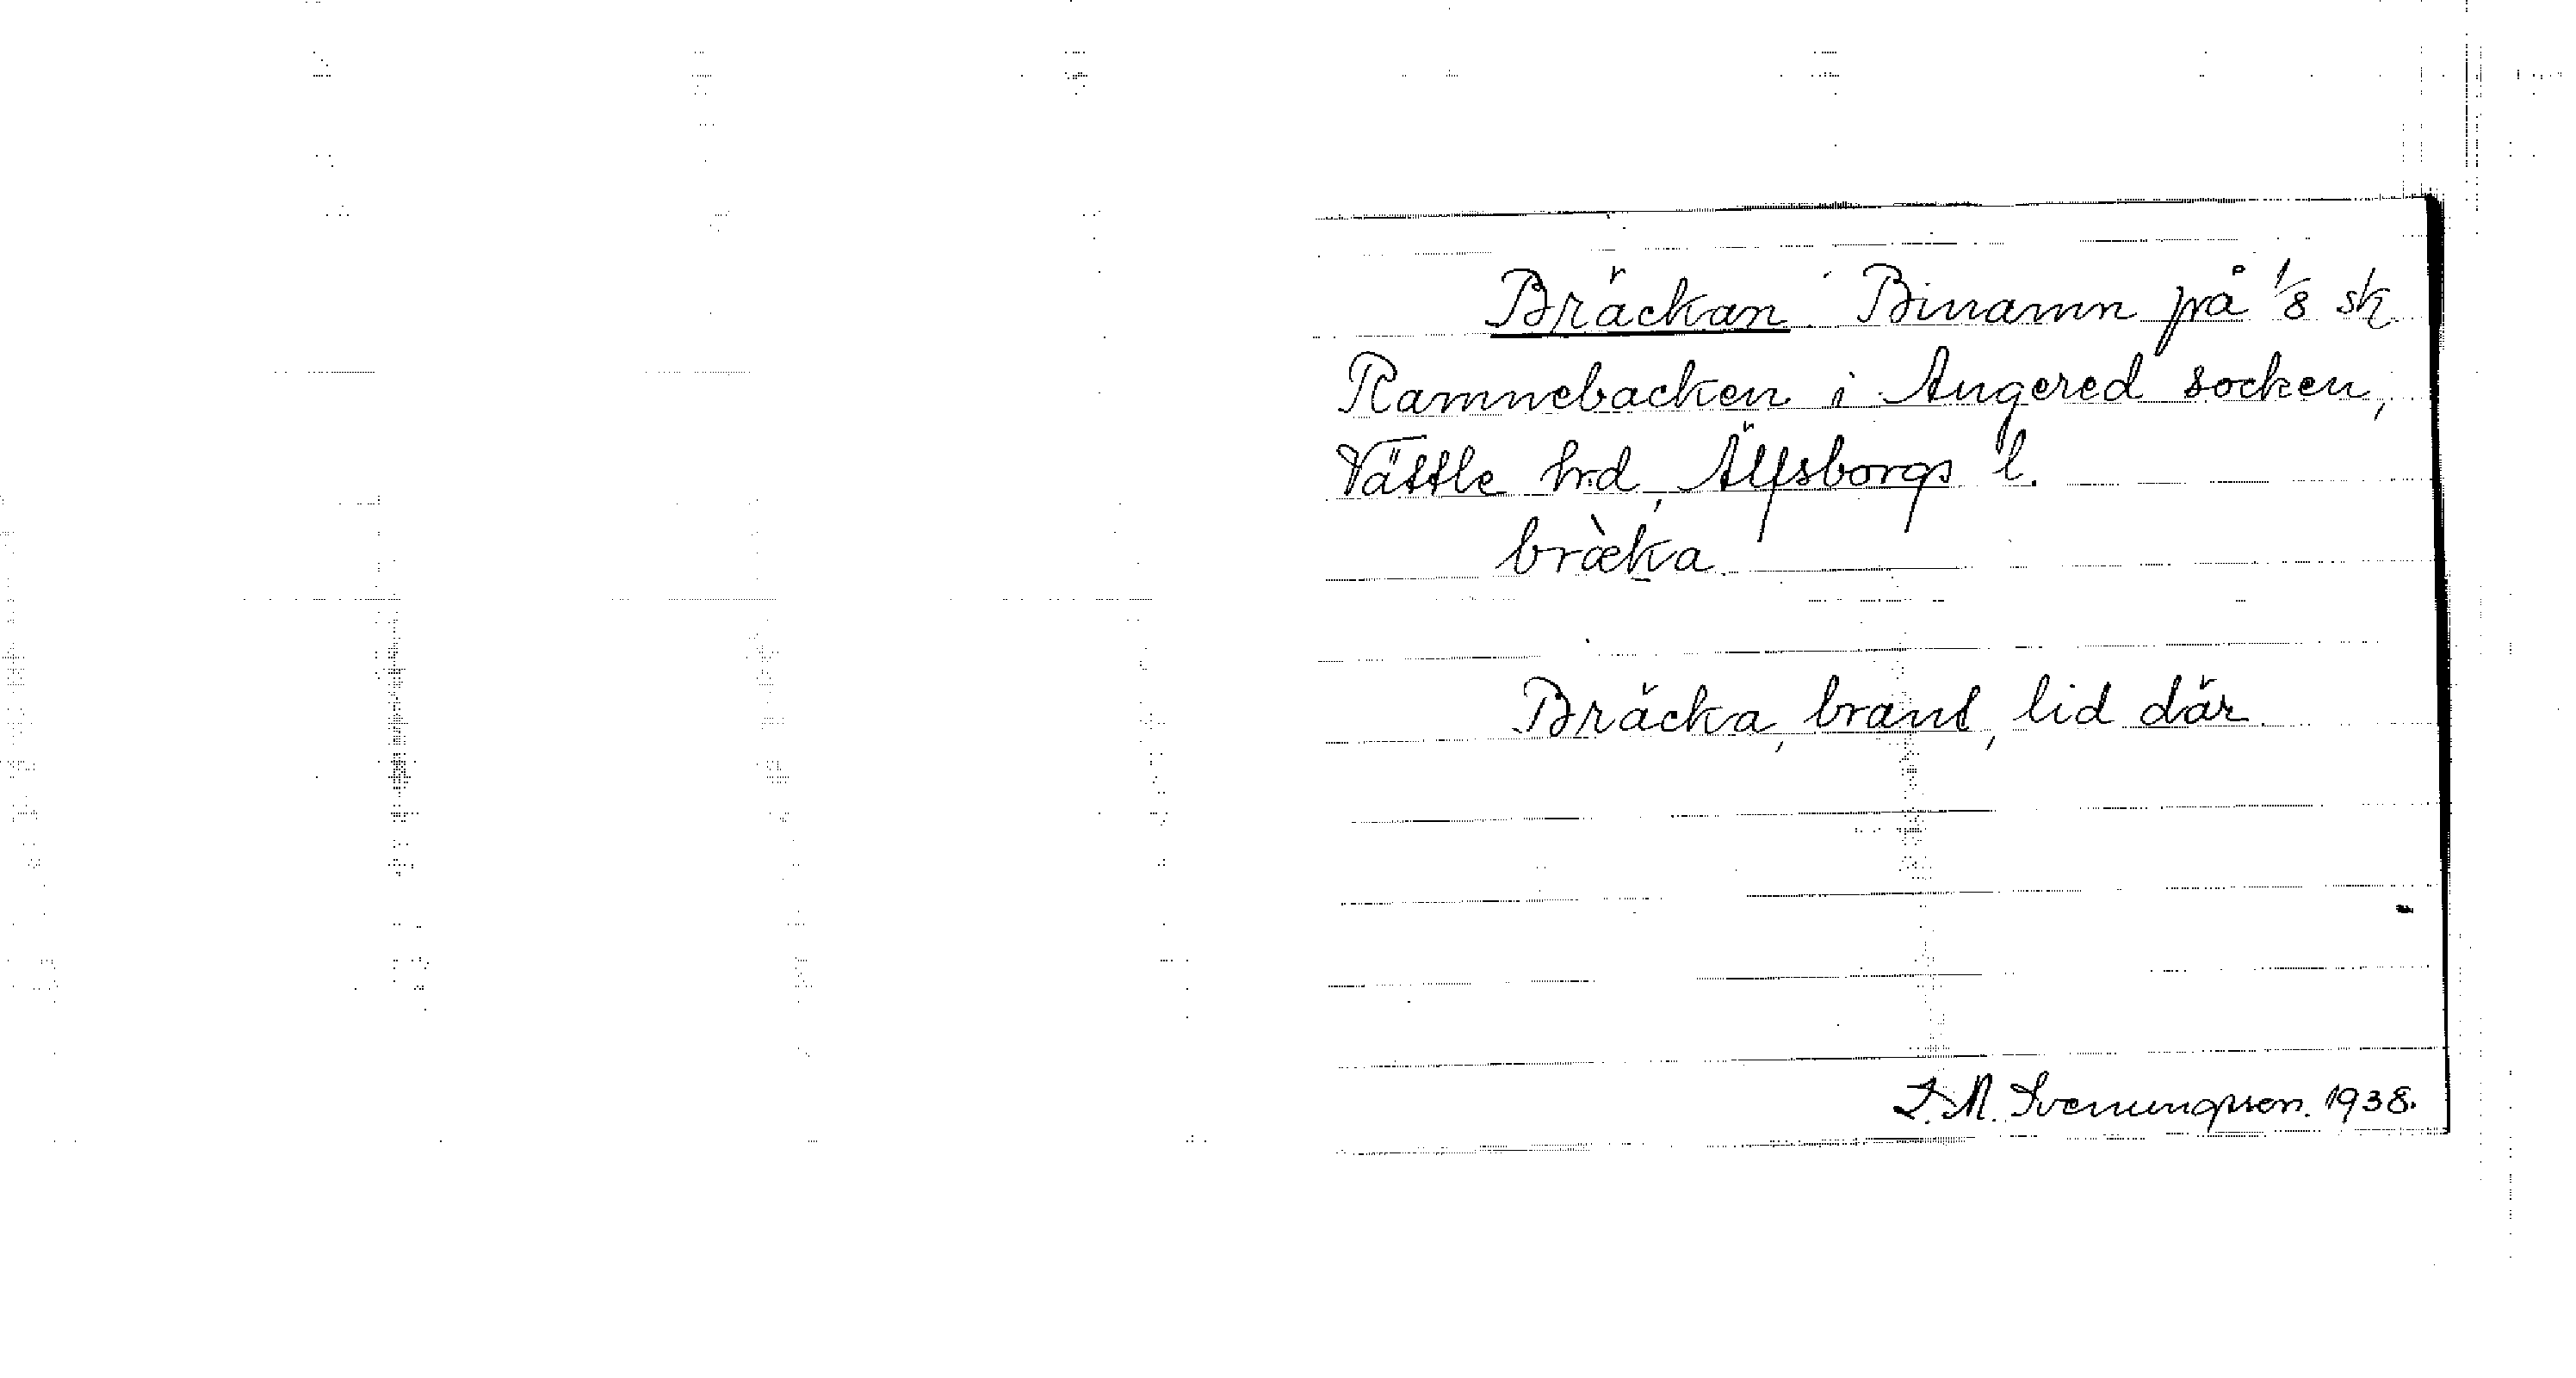 Bräckan. Binamn på 1/8 sk
Ramnebacken i Angered socken,
Vättle hrd, Älfsborgs l.
bræ̀ka
Bräcka, brant, lid där
Svenungsson. 1938.